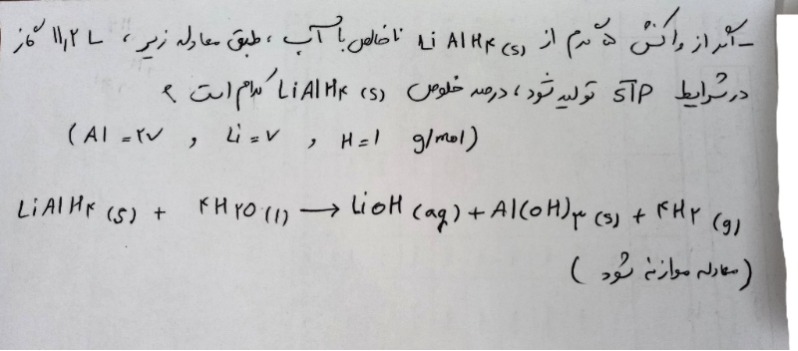 - اگر از واکنش ۵ گرم از LiAlH۴ (s) ناخالص با آب ، طبق معادله زیر ، ۱۱,۲ L گاز
در شرایط STP تولید شود ، درصد خلوص LiAlH۴ (s) کدام است ؟
(Al = ۲۷ , Li = ۷ , H = ۱ g/mol)
LiAlH۴ (s) + ۴H۲O (l) → LiOH (aq) + Al(OH)۳ (s) + ۴H۲ (g)
(معادله موازنه شود)